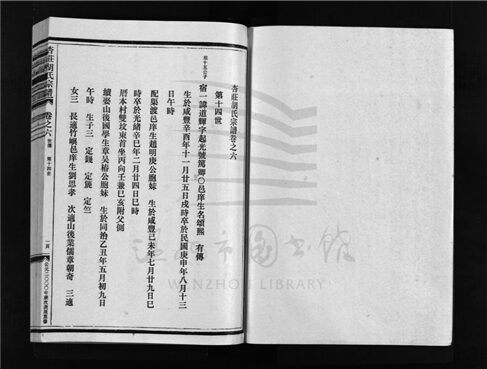 杏莊胡氏宗譜卷之六
第十四世
宿一諱道輝字起光號篤卿○邑庠生名頌熙 有傳
生於咸豐辛酉年十一月廿五日戌時卒於民國庚申年八月十三
日午時
配渠漉邑庠生趙明庚公胞妹 生於咸豐己未年七月廿九日巳
時卒於光緒辛巳年二月廿四日巳時
厝本村雙坟東首坐丙向壬兼巳亥附父側
續娶山後國學生章吳椿公胞妹 生於同治乙丑年五月初九日
午時 生子三 定錢 定簏 定竺
女三 長適竹嶼邑庠生劉思孝 次適山後業儒章朝奇 三適
杏莊胡氏宗譜
卷之六
第十四世
一頁
溫州市圖書館
WENZHOU LIBRARY